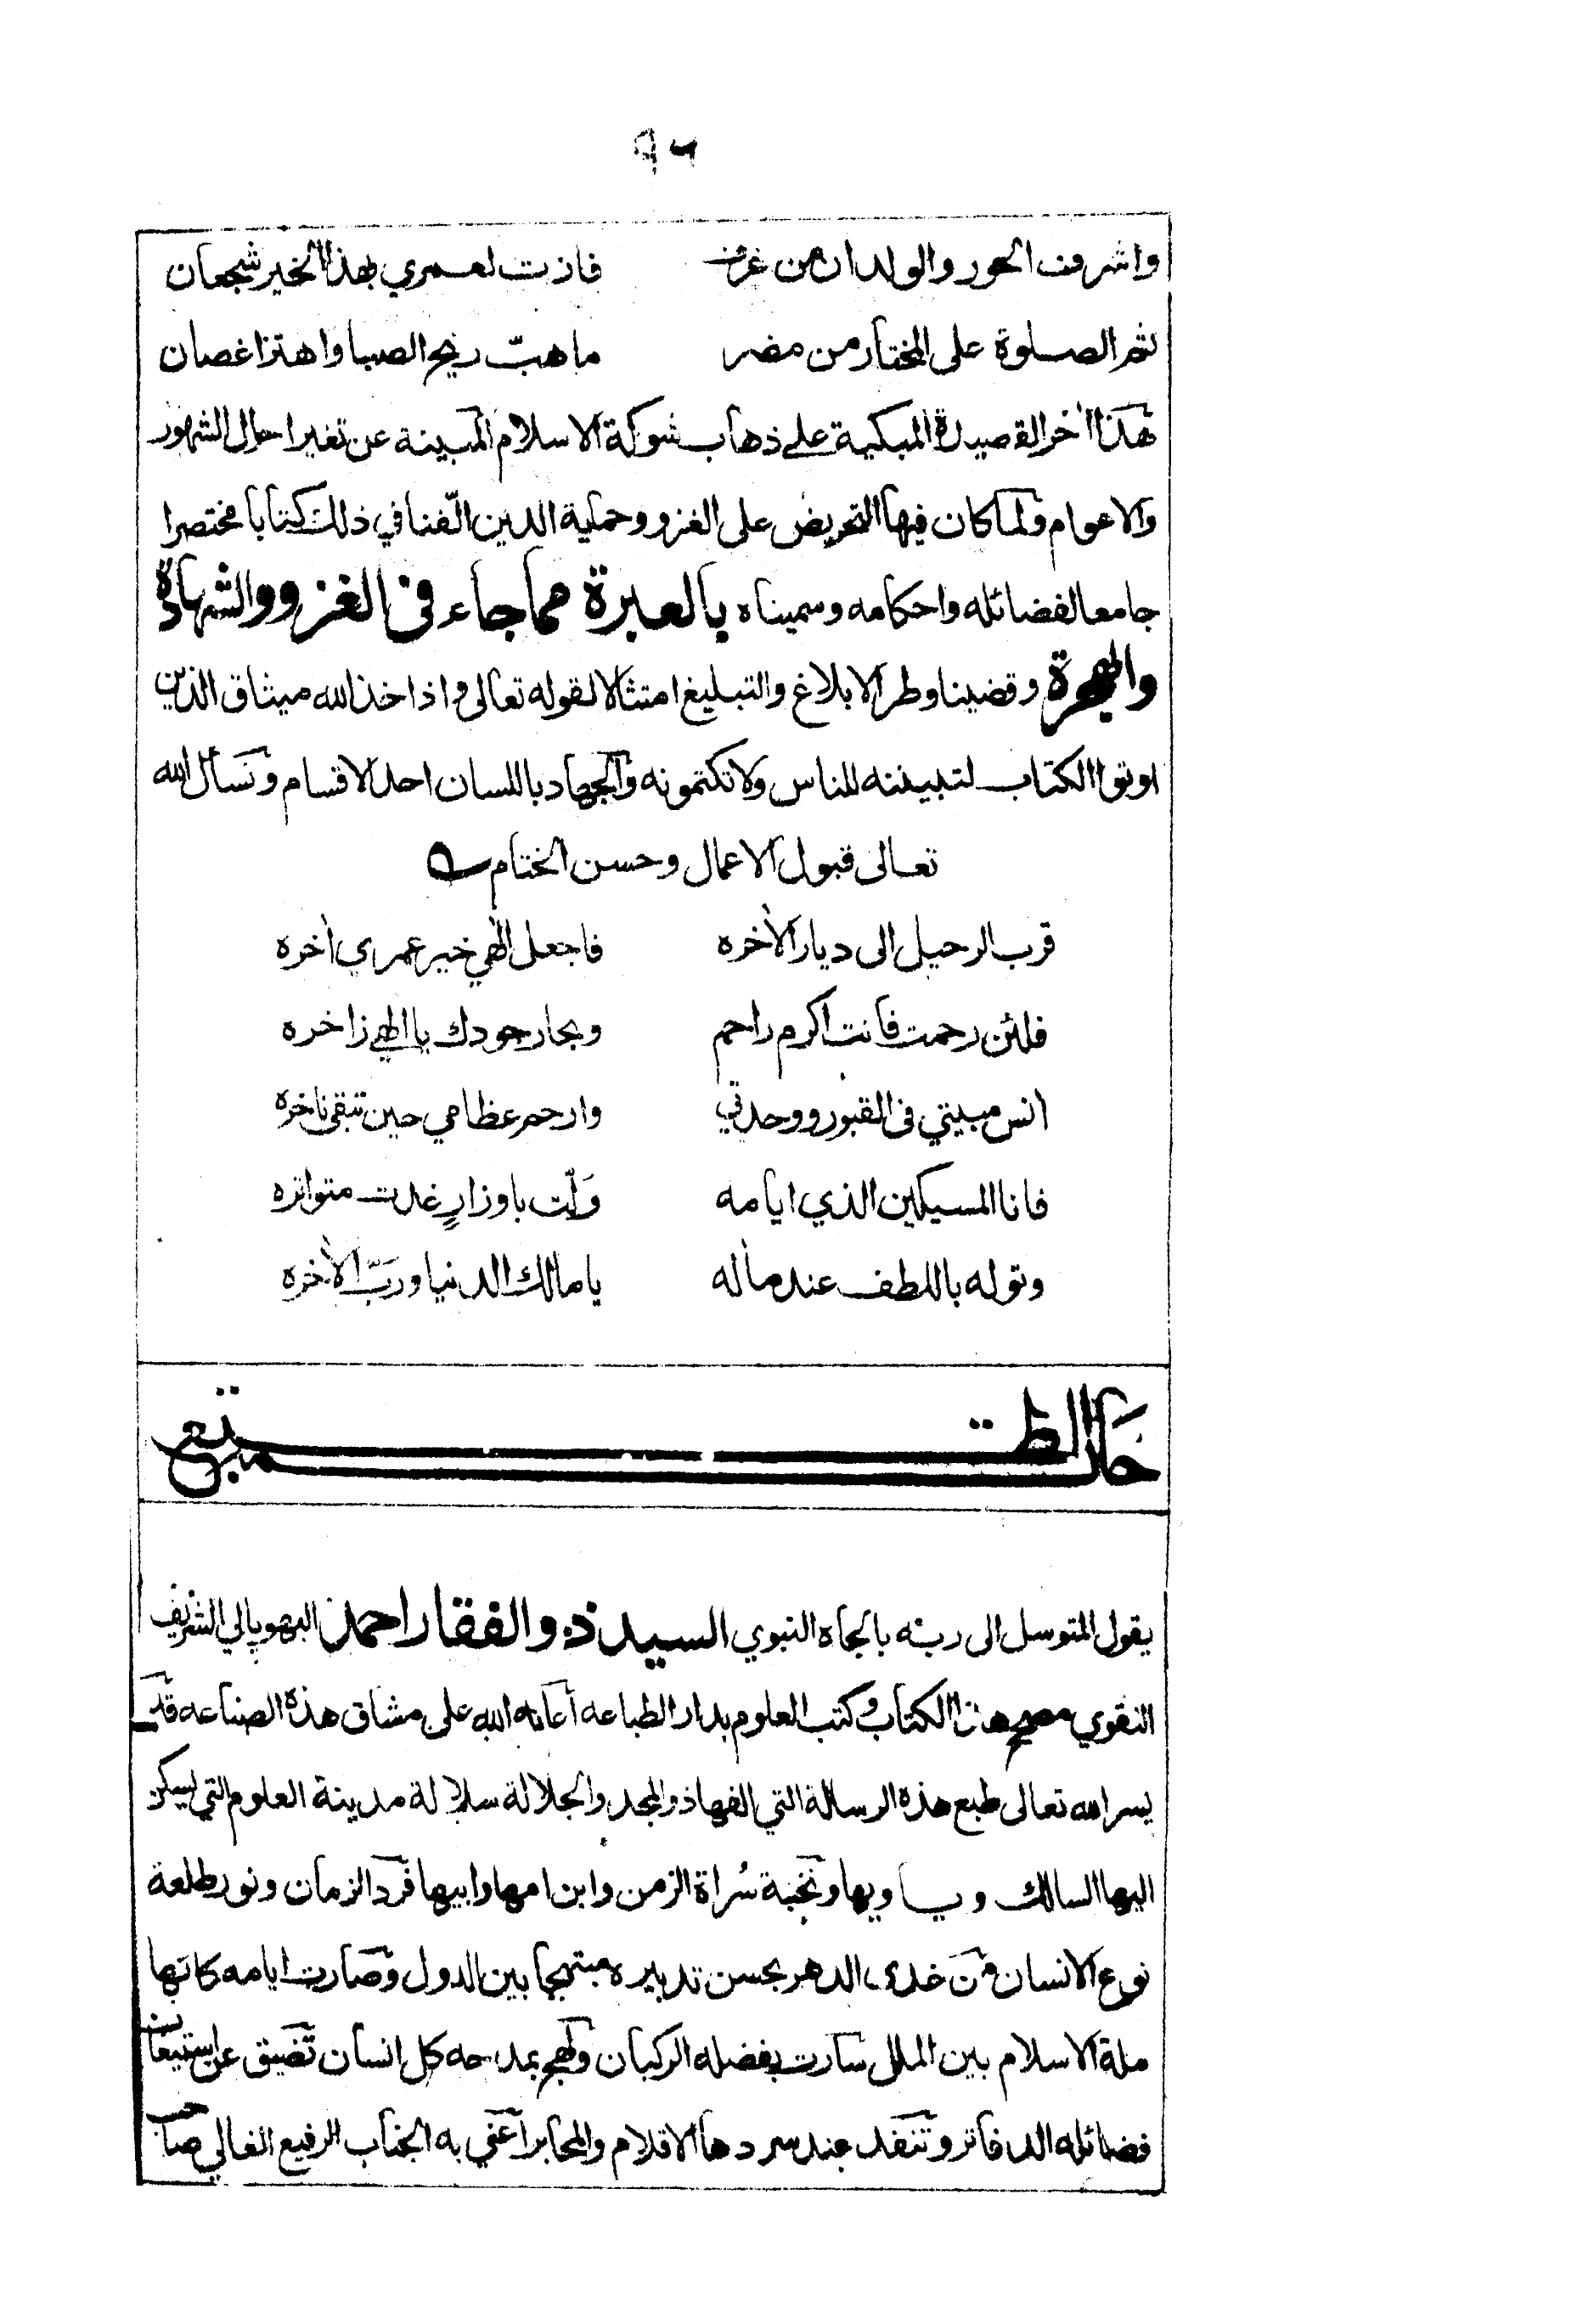 واشرفت الحور والولدان من غرف فازت لعمري بهذا الخير شجعان
ثم الصلوة على المختار من مضر ما هبّ ريح الصبا واهتز اغصان
هذا اٰخر القصيدة المبكية على ذهاب شوكة الاسلام المبينة عن تغير احوال الشهور
والاعوام ولما كان فيها التحريض على الغزو وحماية الدين الّفنا في ذلك كتابا مختصرا
جامعا لفضائله واحكامه وسميناه بالعبرة مما جاء فى الغزو والشهادة
والهجرة وقضينا وطر الابلاغ والتبليغ امتثالا لقوله تعالى واذ اخذ الله ميثاق الذين
اوتوا الكتاب لتبيننه للناس ولا تكتمونه والجهاد باللسان احد الاقسام ونسأل الله
تعالى قبول الاعمال وحسن الختام
قرب الرحيل الى ديار الاٰخره فاجعل الٰهي خير عمري اٰخره
فلئن رحمت فانت اكرم راحم وبحار جودك يا الهي زاخره
اٰنس مبيتي فى القبور ووحدتي وارحم عظامي حين تبقى ناخره
فانا المسيكين الذي ايامه ولّت باوزارٍ غدت متواتره
وتوله باللطف عند مآله يا مالك الدنيا وربّ الاٰخره
خاتمة الطبع
يقول المتوسل الى ربه بالجاه النبوي السيد ذو الفقار احمد البهوپالي الشريف
النقوي مصحح هذا الكتاب وكتب العلوم بدار الطباعه أعانه الله على مشاق هذه الصناعه قد
يسر الله تعالى طبع هذه الرسالة التي الفها ذو المجد والجلالة سلالة مدينة العلوم التي يسكن
اليها السالك وياويها ونخبة سُراة الزمن وابن امها وابيها فرد الزمان ونور طلعة
نوع الانسان من غدى الدهر بحسن تدبيره مبتهجا بين الدول وصارت ايامه كانها
ملة الاسلام بين الملل سارت بفضله الركبان ولهج بمدحه كل انسان تضيق عن استيعاب
فضائله الدفاتر وتنفد عند سردها الاقلام والمحابر أعني به الجناب الرفيع العالي صاحب